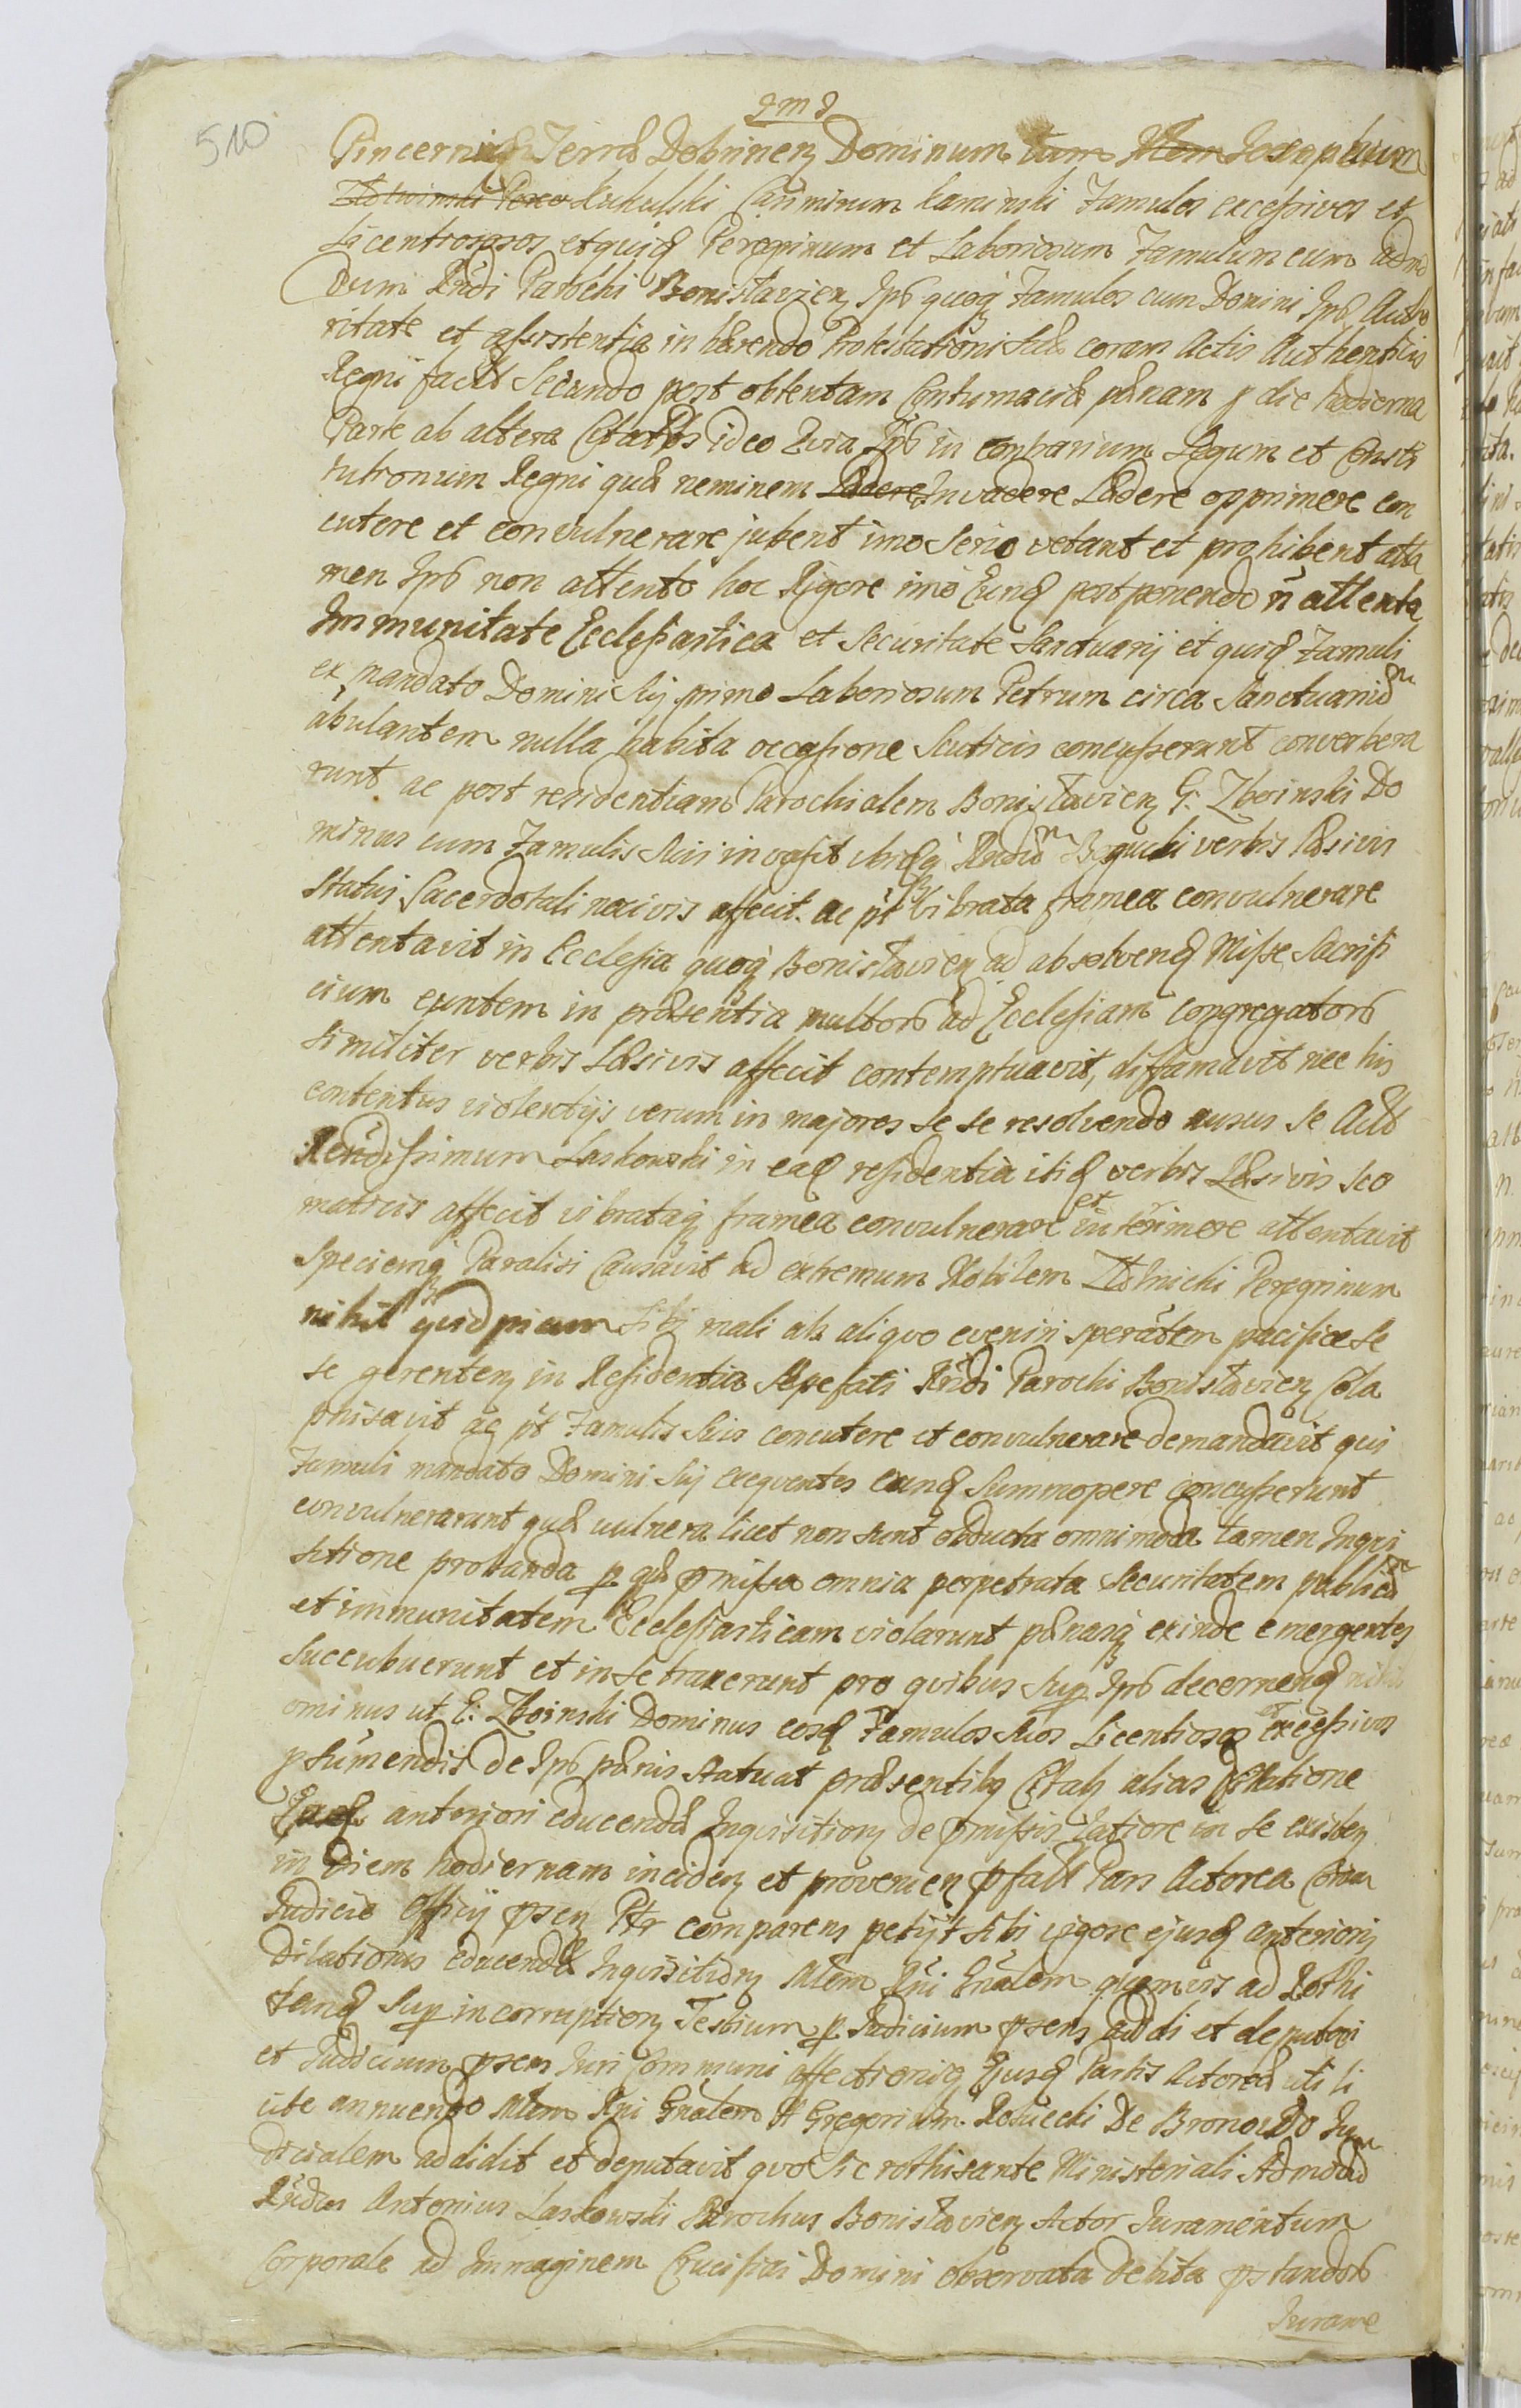 510
Pincernida Terræ Dobrinen Dominum tum Nlem Josephum
Zboinski Kukulski Casimirum Kaminski Famulos excessivos et
Licentiososos etquidē Peregrinum et Laboriosum Famulum eum admo
dum Rndi Parochi Bonislavien Ipōs quoq Famulos cum Domini Ipōs Autho
ritate et assistentia inhærendo Protestationi suæ coram Actis Authenticis
Regni factæ Secundo post obtentam Contumaciæ pænam p die hodierna
Parte ab altera Citatos ideo quia Ipōs in contrarium Legum et Consti
tutionum Regni quæ neminem Lædere Invadere Lædere opprimere con
cutere et convulnerare jubent imo serio vetant et prohibent atta
men Ipōs non attento hoc Rigore imo Eund postponendo n attenta
Immunitate Ecclesiastica et Securitate Sanctuarij et quid Famuli
ex mandato Domini Sui primo Laboriosum Petrum circa Sanctuariūm
abulantem nulla habita occasione Scuticis concusserunt converbera
runt ac post residentiam Parochialem Bonislavien G. Zboinski Do
minus cum Famulis suis invasit ibiq Rndūm Bogucki verbis læsivis
Statui Sacerdotali nocivis affecit ac pt vibrata framea convulnerare
attentavit in Ecclesia quoq Bonislavien ad absolvend Missæ Sacrifi
cium euntem in præsentia multorō ad Ecclesiam congregatorō
similiter verbis læsivis affecit contemptuavit, diffamavit nec his
contentus violentijs verum in majores se se resolvendo ausus se Actō
Rendissimum Laskowski in ead residentia itid verbis Læsivis sco
maticis affecit vibrataq framea convulnerare et interimere attentavit
Speciemq Paralisi Causavit ad extremum Nobilem Zolnicki Peregrinum
nihil quidpiam sibi mali ab aliquo eveniri sperātem pacifice se
se gerentem in Residentia Sæpefati Rndi Parochi Bonislavien Cola
phisavit ac pt Famulis suis concutere et convulnerare demandavit qui
Famuli mandato Domini Sui exequentes eund Summopere concusserunt
convulnerarunt quæ vulnera licet non sunt obducta omnimoda tamen Inqui
sitione probanda p quæ pmissa omnia perpetrata Securitatem publicām
et immunitatem Ecclesiasticam violarunt pænasq exinde emergentes
Succubuerunt et in se traxerunt pro quibus Sup Ipōs decernend nihil
ominus ut G. Zboinski Dominus eosd Famulos suos Licentiosos et excessivos
p sumendis de Ipōs pænis statuat præsentibq Citatq alias Dilatione
Ejusd anteriori educendæ Inquisitionq de pmissis latiore in se existen
in Diem hodiernam inciden et provenien pfatæ Pars Actorea Coram
Judicio Officij psen Ptr comparens petijt sibi vigore ejusd anterioris
Dilationis educendæ Inquisitionq Mlem Rni Gnalem quemvis ad Rothi
tand Sup incorruptionq Testium p Judicium psens addi et deputari
et Judicium psens Juri Communi affectioniq Ejusd Partis Actoreæ uti li
cite annuendo Mlem Rni Gnalem H Gregorium Rosuecki De Bronowo Ju
dicialem addidit et deputavit quo sic rothisante Ministeriali Admodūm
Rndus Antonius Laskowski Parochus Bonislavien Actor Juramentum
Corporale ad Immaginem Crucifixi Domini observata debita pstandorō
Jurame